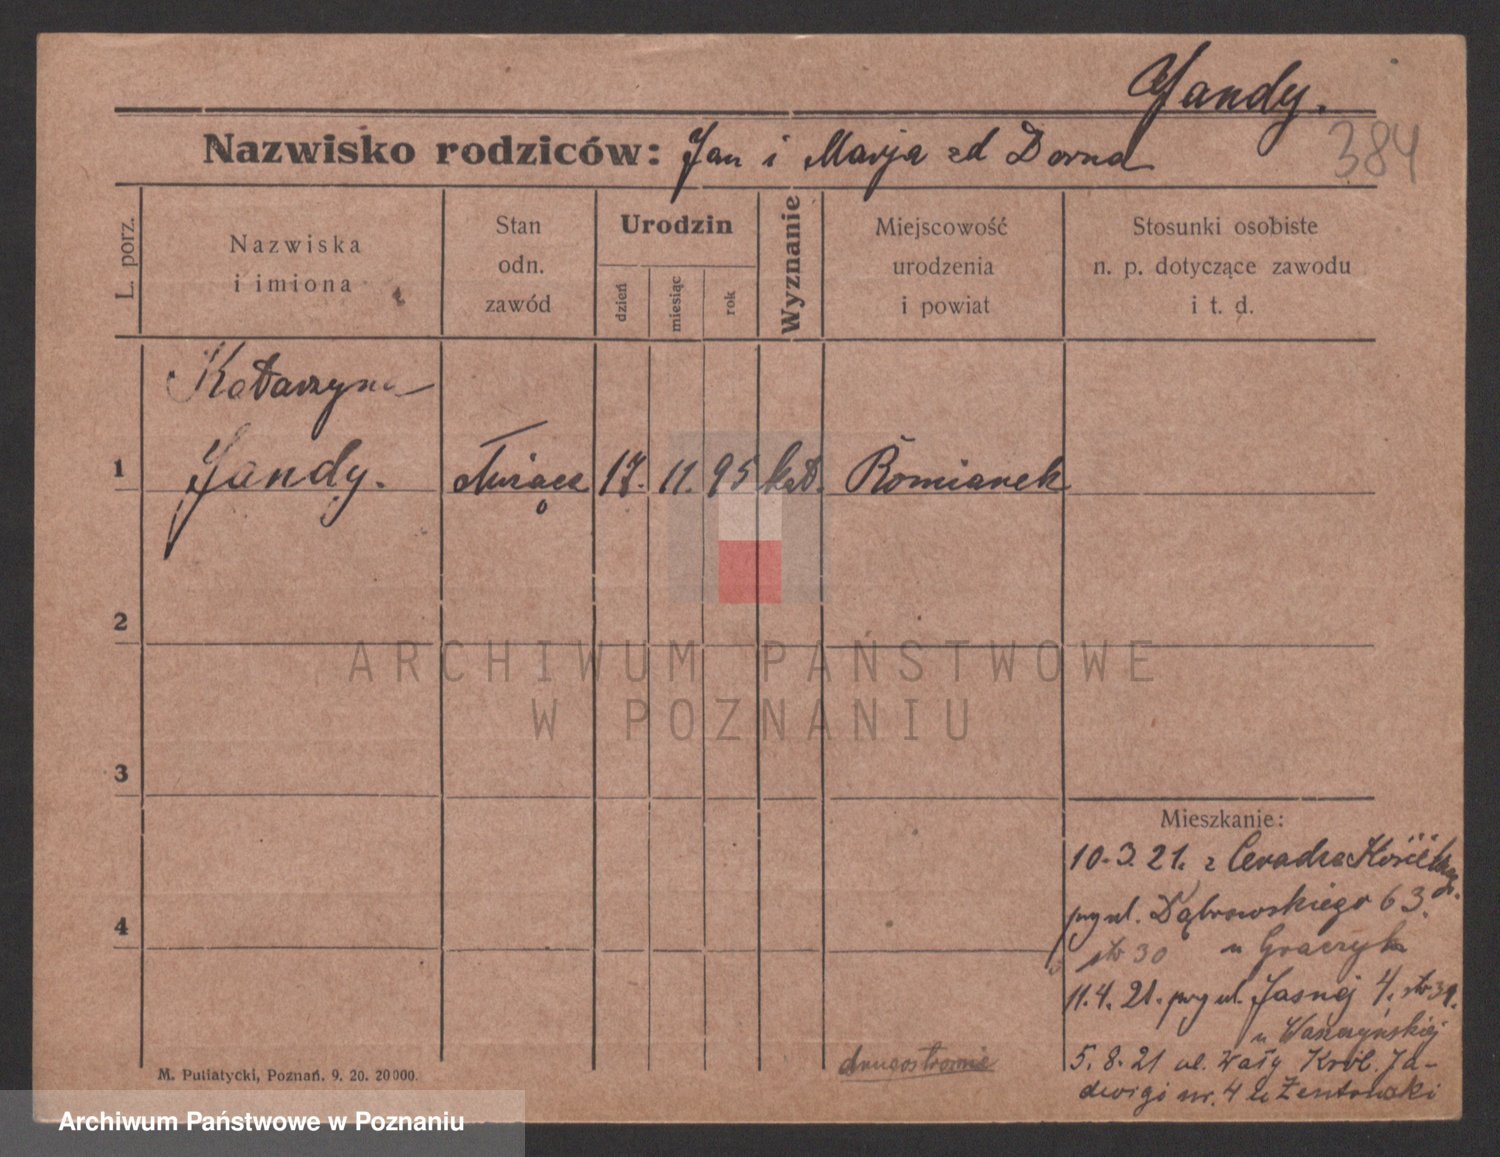 Jandy.
384
Nazwisko rodziców: Jan i Marja zd Dorna
L. porz.
Nazwiska
i imiona
Stan
odn.
zawód
Urodzin
dzień
miesiąc
rok
Wyznanie
Miejscowość
urodzenia
i powiat
Stosunki osobiste
n. p. dotyczące zawodu
i t. d.
Katarzyna
1 Jandy. służąca 17. 11. 95 kat. Romianek
2
3
4
ARCHIWUM PAŃSTWOWE
W POZNANIU
Mieszkanie:
10.3.21. z
przy ul. Dąbrowskiego 63.
str 30 u Graczyk
11.4.21. przy ul. Jasnej 4. str
u
5.8.21 ul. Wały Król. Ja-
dwigi nr. 4 u
drugostronnie
M. Putiatycki, Poznań. 9. 20. 20000.
Archiwum Państwowe w Poznaniu